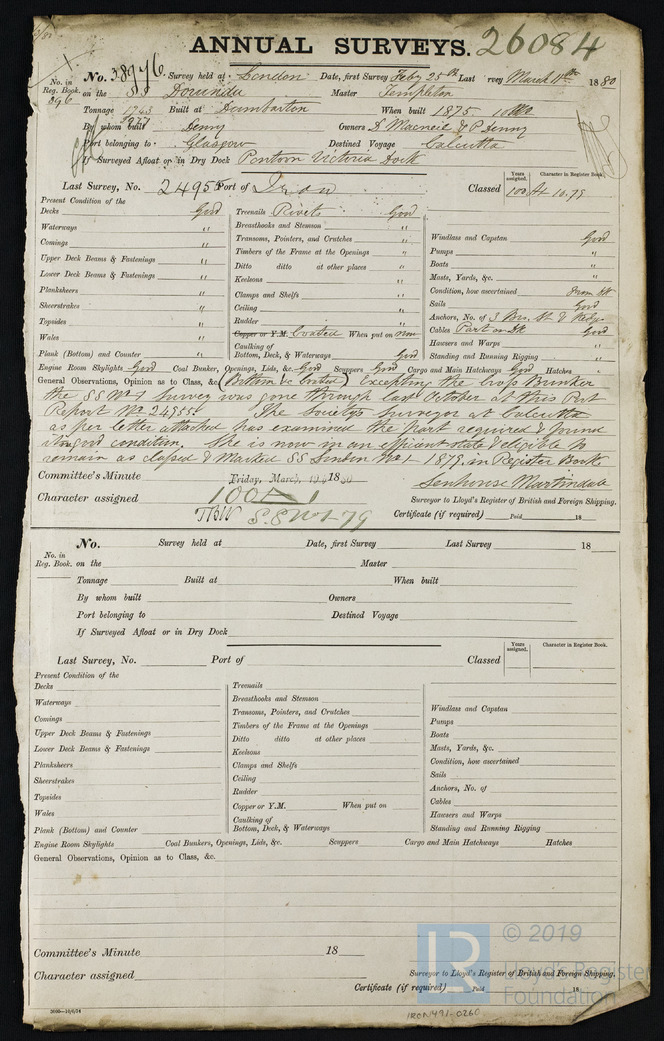 ANNUAL SURVEYS. 26084
No. 38976. Survey held at London Date, first Survey Feby 25th Last Survey March 11th 1880
No. in Reg. Book. 896 on the SS Dorunda Master Templeton
Tonnage 1743 Built at Dumbarton When built 1875 10 Mo
By whom built Denny Owners D Macneil & P Denny
Port belonging to Glasgow Destined Voyage Calcutta
If Surveyed Afloat or in Dry Dock Pontoon Victoria Dock
Last Survey, No. 24955 Port of Iron Classed
Years assigned. 100 Character in Register Book. A1 10.79
Present Condition of the
Decks Good
Waterways "
Comings "
Upper Deck Beams & Fastenings "
Lower Deck Beams & Fastenings "
Planksheers "
Sheerstrakes "
Topsides "
Wales "
Plank (Bottom) and Counter "
Treenails Rivets Good
Breasthooks and Stemson "
Transoms, Pointers, and Crutches "
Timbers of the Frame at the Openings "
Ditto ditto at other places "
Keelsons "
Clamps and Shelfs "
Ceiling "
Rudder "
Copper or Y.M. Coated When put on now
Caulking of
Bottom, Deck, & Waterways Good
Windlass and Capstan Good
Pumps "
Boats "
Masts, Yards, &c. "
Condition, how ascertained from dk
Sails Good
Anchors, No. of 3 Brs. St. & Kedge
Cables Part on Dk Good
Hawsers and Warps "
Standing and Running Rigging "
Engine Room Skylights Good Coal Bunker, Openings, Lids, &c. Good Scuppers Good Cargo and Main Hatchways Good Hatches "
General Observations, Opinion as to Class, &c. (Bottom &c Coated) Excepting the Cross Bunker
the SS No 1 Survey was gone through last October at this Port
Report No 24955. The Society's Surveyor at Calcutta
as per letter attached has examined the part required & found
it in good condition. She is now in an efficient state & eligible to
remain as classed & Marked SS London No 1 1879, in Register Book
Committee's Minute Friday, March 1880
Character assigned 100A1
SS No 1-79
Senhouse Martindale
Surveyor to Lloyd's Register of British and Foreign Shipping.
Certificate (if required) Paid 18
No. Survey held at Date, first Survey Last Survey 18
No. in Reg. Book. on the Master
Tonnage Built at When built
By whom built Owners
Port belonging to Destined Voyage
If Surveyed Afloat or in Dry Dock
Last Survey, No. Port of Classed
Years assigned. Character in Register Book.
Present Condition of the
Decks
Waterways
Comings
Upper Deck Beams & Fastenings
Lower Deck Beams & Fastenings
Planksheers
Sheerstrakes
Topsides
Wales
Plank (Bottom) and Counter
Treenails
Breasthooks and Stemson
Transoms, Pointers, and Crutches
Timbers of the Frame at the Openings
Ditto ditto at other places
Keelsons
Clamps and Shelfs
Ceiling
Rudder
Copper or Y.M. When put on
Caulking of
Bottom, Deck, & Waterways
Windlass and Capstan
Pumps
Boats
Masts, Yards, &c.
Condition, how ascertained
Sails
Anchors, No. of
Cables
Hawsers and Warps
Standing and Running Rigging
Engine Room Skylights Coal Bunkers, Openings, Lids, &c. Scuppers Cargo and Main Hatchways Hatches
General Observations, Opinion as to Class, &c.
Committee's Minute 18
Character assigned
Surveyor to Lloyd's Register of British and Foreign Shipping.
Certificate (if required) Paid 18
LR © 2019
Lloyd's Register
Foundation
IRON491-0260